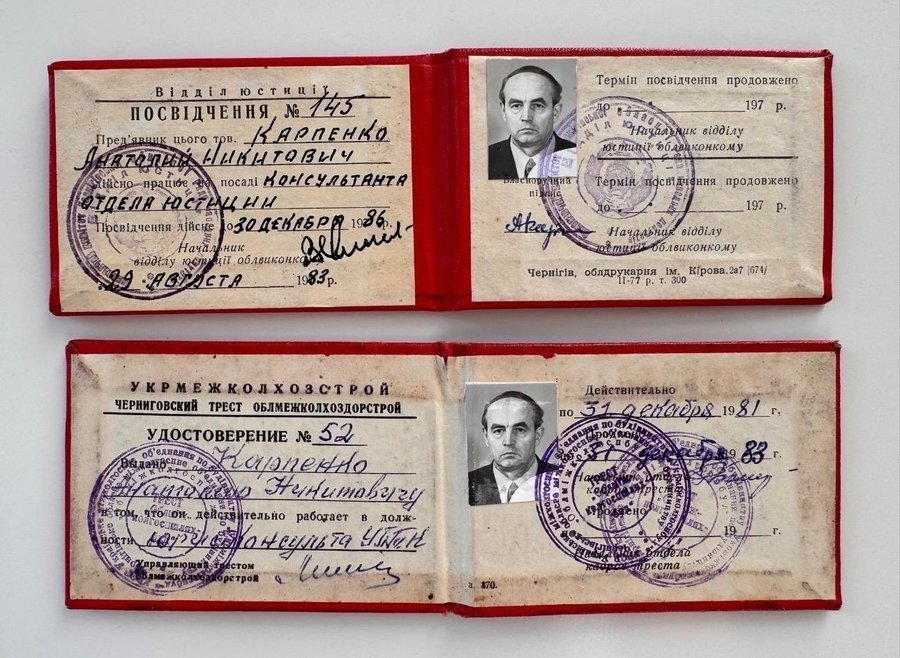 Відділ юстиції
ПОСВІДЧЕННЯ № 145
Пред'явник цього тов. КАРПЕНКО
АНАТОЛИЙ НИКИТОВИЧ
дійсно працює на посаді КОНСУЛЬТАНТА
ОТДЕЛА ЮСТИЦИИ
Посвідчення дійсне до 30 ДЕКАБРЯ 1986.
Начальник
відділу юстиції облвиконкому
29 АВГУСТА 1983 р.
Термін посвідчення продовжено
до 197 р.
Начальник відділу
юстиції облвиконкому
Власноручний
підпис
Термін посвідчення продовжено
до 197 р.
Начальник відділу
юстиції облвиконкому
Чернігів, облдрукарня ім. Кірова.
II-77 р. т. 300
УКРМЕЖКОЛХОЗСТРОЙ
ЧЕРНИГОВСКИЙ ТРЕСТ ОБЛМЕЖКОЛХОЗДОРСТРОЙ
УДОСТОВЕРЕНИЕ № 52
Выдано Карпенко
Анатолию Никитовичу
в том, что он действительно работает в долж-
ности юрисконсульта
Управляющий трестом
облмежколхоздорстрой
Действительно
по 31 декабря 1981 г,
Продлено
декабря 83
Начальник отдела
кадров треста
Продлено
19 г,
Начальник отдела
кадров треста
з. 870.